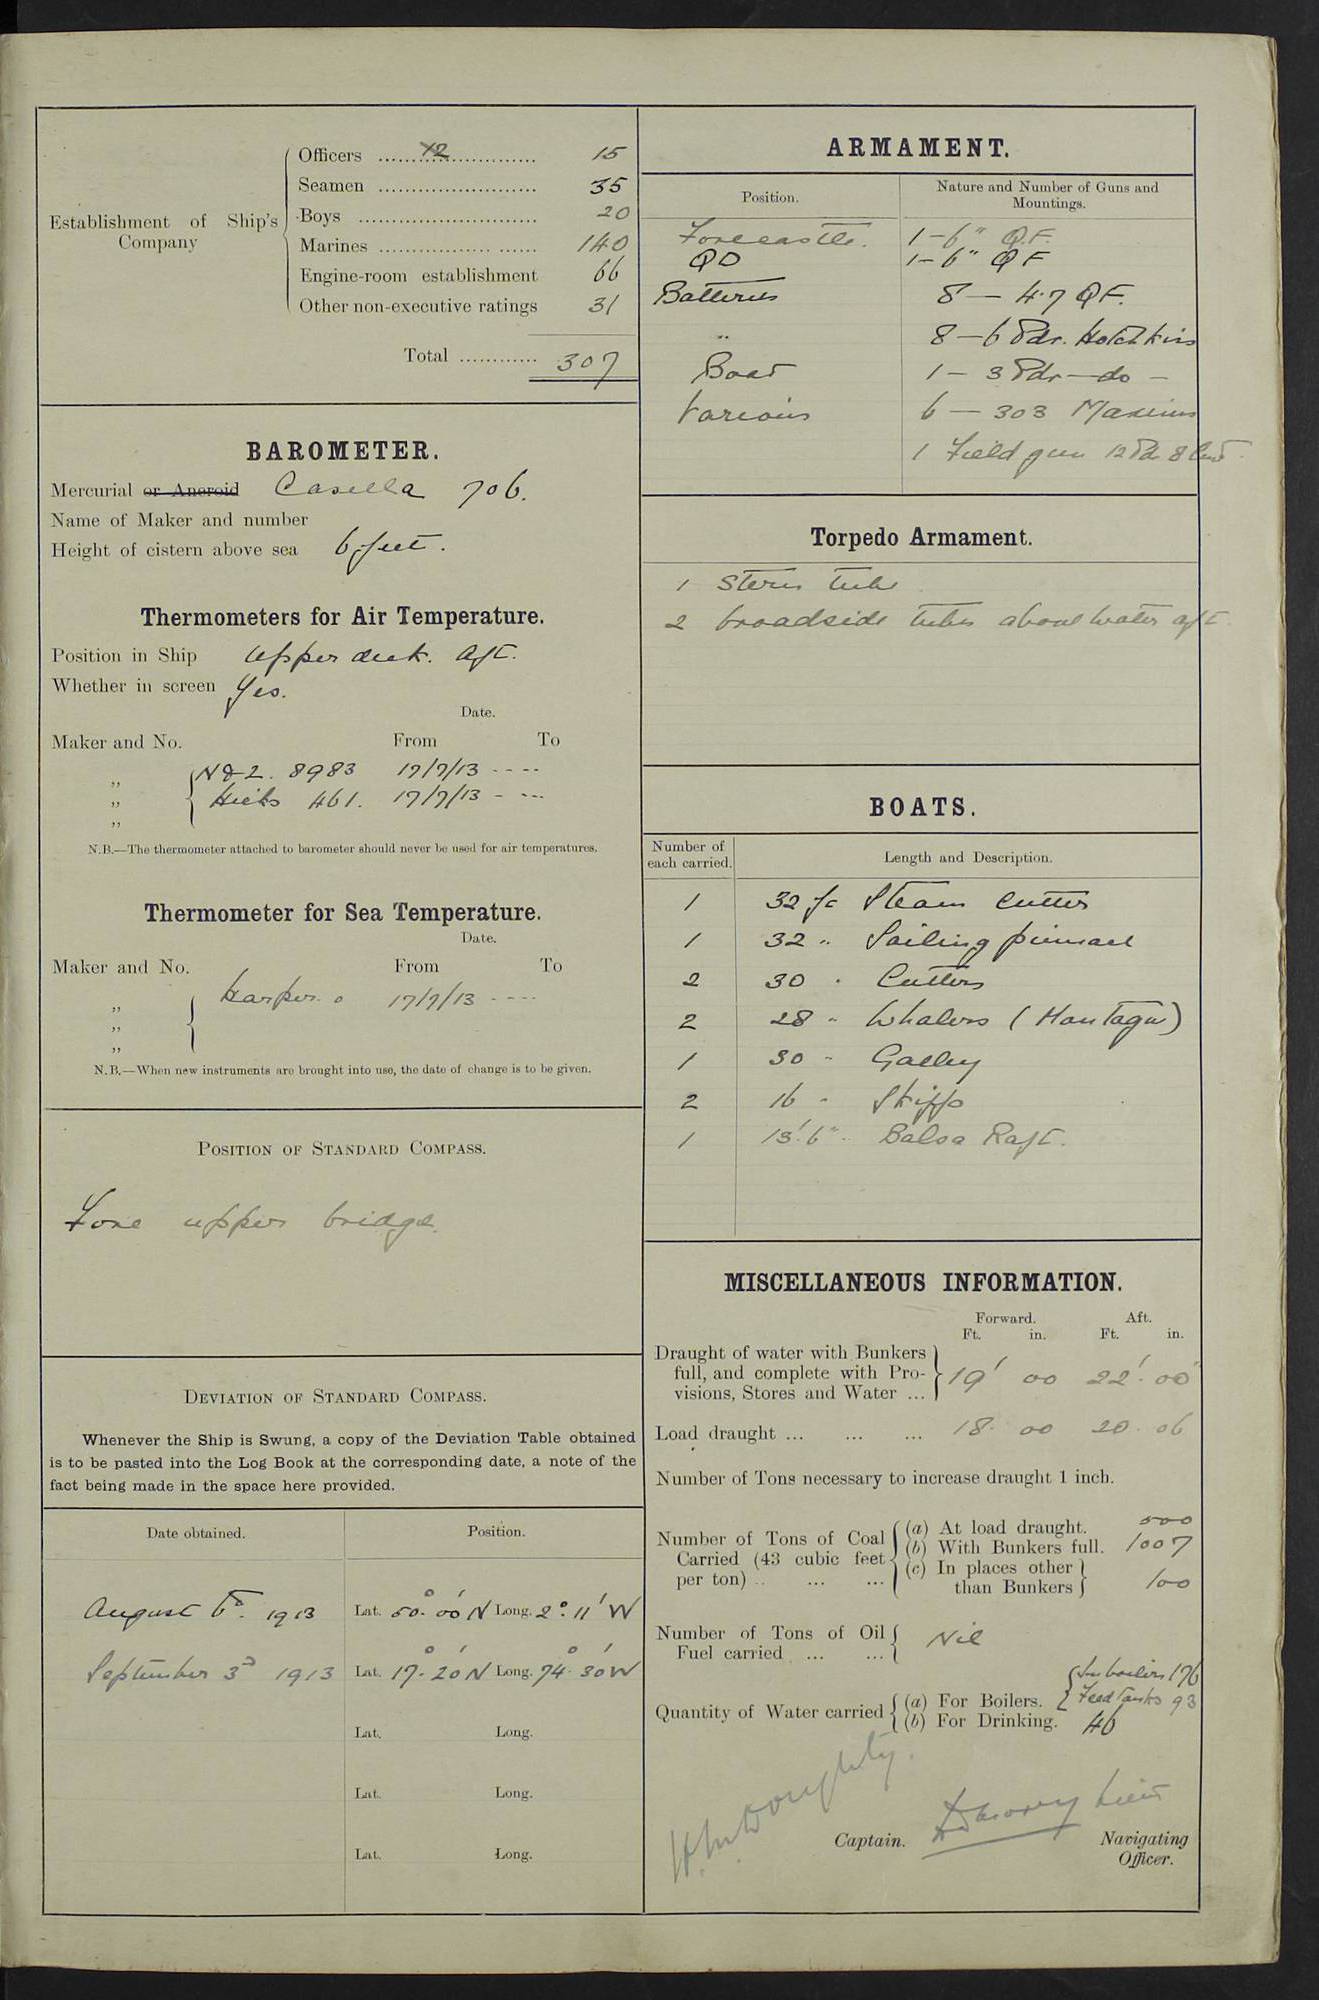 Establishment of Ship's Company
Officers ........................ 15
Seamen ........................ 35
Boys ........................... 20
Marines ................ ...... 140
Engine-room establishment 66
Other non-executive ratings 31
Total ............ 307
BAROMETER.
Mercurial or Aneroid Casella 706.
Name of Maker and number
Height of cistern above sea 6 feet.
Thermometers for Air Temperature.
Position in Ship Upper deck. Aft.
Whether in screen Yes.
Date.
Maker and No. From To
„ N&Z. 8983 17/7/13 ----
„ Hicks 461. 17/7/13 - ---
„
N.B.—The thermometer attached to barometer should never be used for air temperatures.
Thermometer for Sea Temperature.
Date.
Maker and No. From To
„ Harper. 0 17/7/13 ----
„
„
N.B.—When new instruments are brought into use, the date of change is to be given.
POSITION OF STANDARD COMPASS.
Fore upper bridge.
DEVIATION OF STANDARD COMPASS.
Whenever the Ship is Swung, a copy of the Deviation Table obtained
is to be pasted into the Log Book at the corresponding date, a note of the
fact being made in the space here provided.
Date obtained. Position.
August 6th. 1913 Lat. 50° 00' N Long. 2° 11' W
September 3rd 1913 Lat. 17° 20' N Long. 74° 30' W
Lat. Long.
Lat. Long.
Lat. Long.
ARMAMENT.
Position. Nature and Number of Guns and Mountings.
Forecastle. 1-6" Q.F.
QD 1-6" QF
Batteries 8 — 4.7 QF.
" 8 — 6 Pdr. Hotchkiss
Boat 1 — 3 Pdr — do —
Various 6 — 303 Maxims
1 Field gun 12 Pdr 8 Cwt.
Torpedo Armament.
1 Stern tube
2 broadside tubes above water aft.
BOATS.
Number of each carried. Length and Description.
1 32 ft Steam Cutter
1 32 " Sailing pinnace
2 30 " Cutters
2 28 " Whalers (Montagu)
1 30 " Galley
2 16 " Skiffs
1 13' 6" Balsa Raft.
MISCELLANEOUS INFORMATION.
Forward. Aft.
Ft. in. Ft. in.
Draught of water with Bunkers
full, and complete with Pro-
visions, Stores and Water ... 19' 00 22' 00
Load draught ... ... ... 18. 00 20. 06
Number of Tons necessary to increase draught 1 inch.
Number of Tons of Coal Carried (43 cubic feet per ton) .. ... ...
(a) At load draught. 500
(b) With Bunkers full. 1007
(c) In places other than Bunkers 100
Number of Tons of Oil Fuel carried ... ... Nil
Quantity of Water carried
(a) For Boilers. In boilers 176
Feed Tanks 93
(b) For Drinking. 46
H. M. Doughty.
Captain.
Lieut
Navigating
Officer.